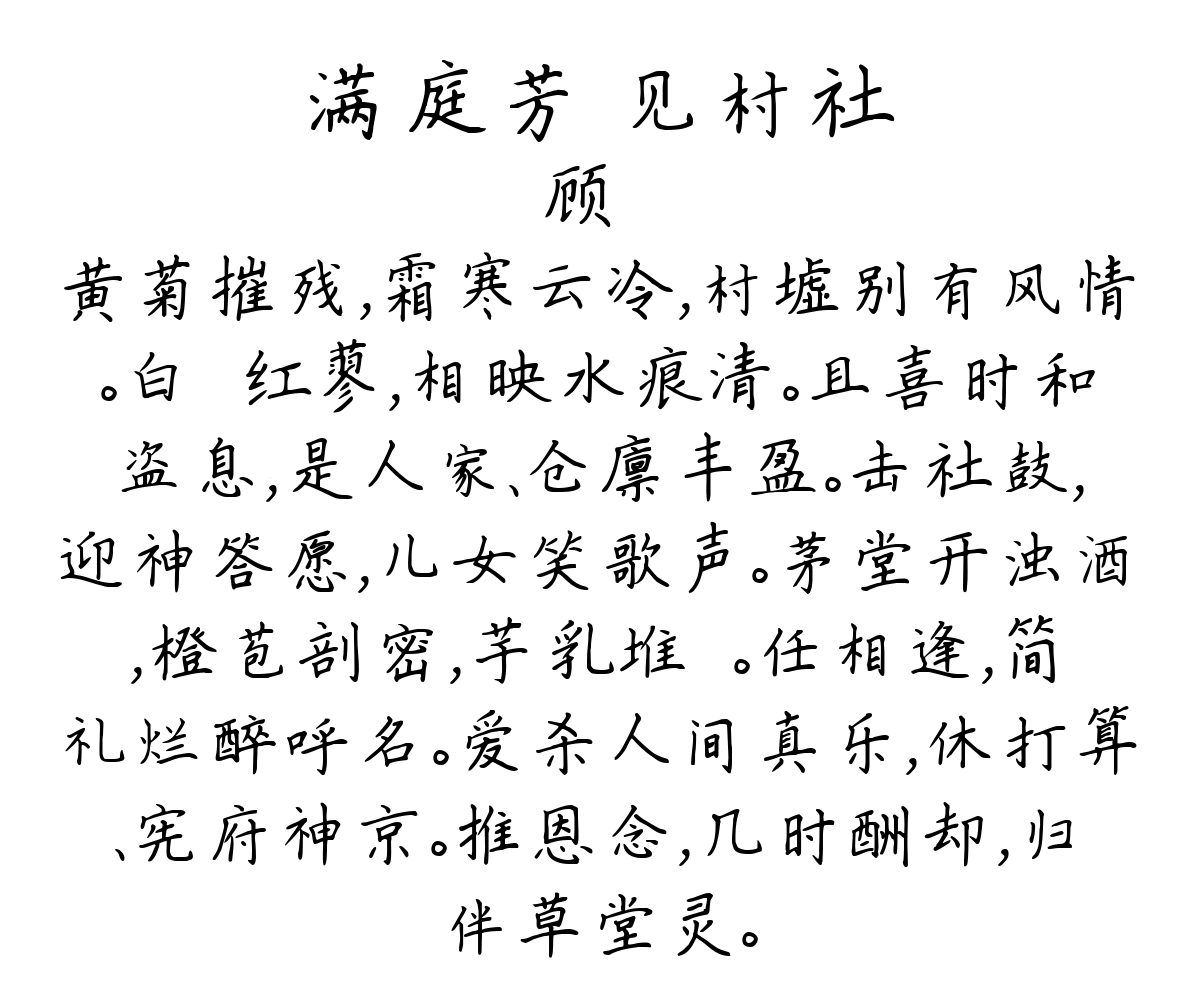 满庭芳 见村社
顾
黄菊摧残,霜寒云冷,村墟别有风情
。白 红蓼,相映水痕清。且喜时和
盗息,是人家、仓廪丰盈。击社鼓,
迎神答愿,儿女笑歌声。茅堂开浊酒
,橙苞剖密,芋乳堆 。任相逢,简
礼烂醉呼名。爱杀人间真乐,休打算
、宪府神京。推恩念,几时酬却,归
伴草堂灵。